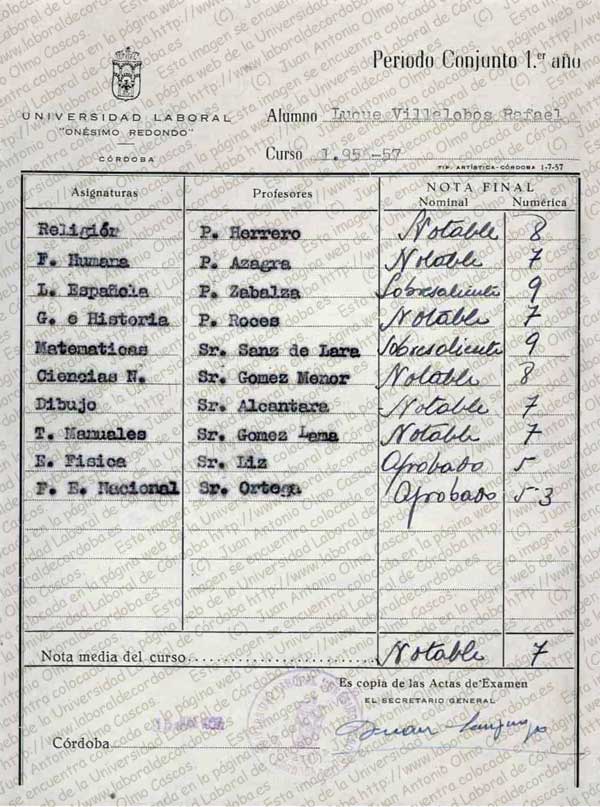 Periodo Conjunto 1.er año
UNIVERSIDAD LABORAL
"ONÉSIMO REDONDO"
CÓRDOBA
Alumno Luque Villalobos Rafael
Curso 1.956-57
TIP. ARTÍSTICA-CÓRDOBA 1-7-57
Asignaturas Profesores NOTA FINAL
Nominal Numérica
Religión P. Herrero Notable 8
F. Humana P. Azagra Notable 7
L. Española P. Zabalza Sobresaliente 9
G. e Historia P. Roces Notable 7
Matematicas Sr. Sanz de Lara Sobresaliente 9
Ciencias N. Sr. Gomez Menor Notable 8
Dibujo Sr. Alcantara Notable 7
T. Manuales Sr. Gomez Lama Notable 7
E. Fisica Sr. Liz Aprobado 5
F. E. Nacional Sr. Ortega Aprobado 5-3
Nota media del curso Notable 7
Es copia de las Actas de Examen
EL SECRETARIO GENERAL
Juan
Córdoba
(C) Juan Antonio Olmo Cascos. Esta imagen se encuentra colocada en la página web de la Universidad Laboral de Córdoba http://www.laboraldecordoba.es